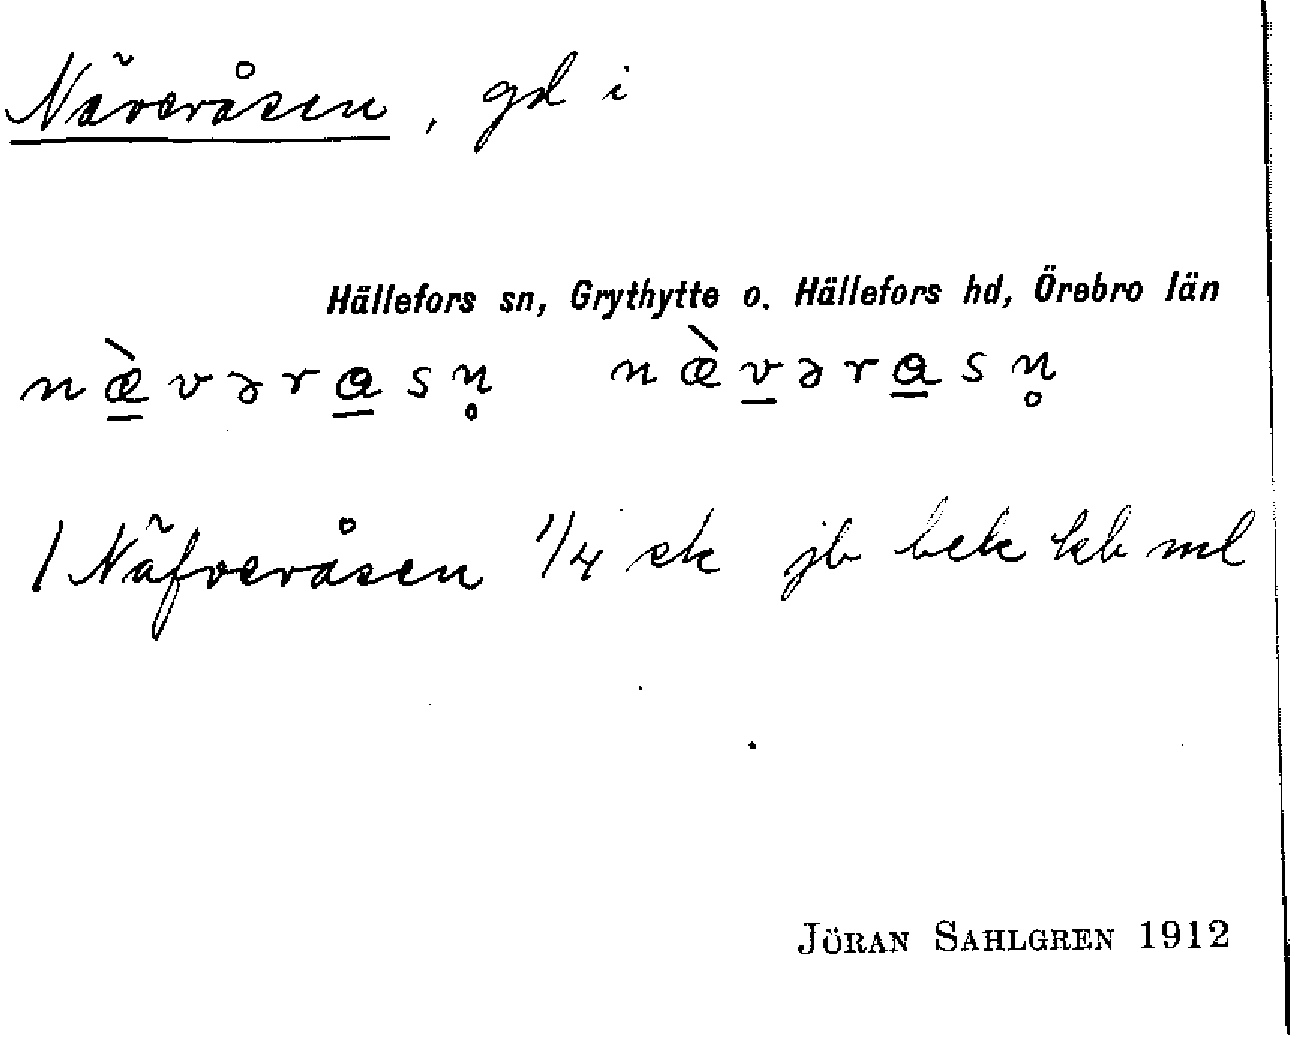 Näveråsen, gd i
Hällefors sn, Grythytte o. Hällefors hd, Örebro län
næ̱̀vəra̱sn̥ næ̀v̱əra̱sn̥
1 Näfveråsen 1/4 sk jb bek kb ml
JÖRAN SAHLGREN 1912